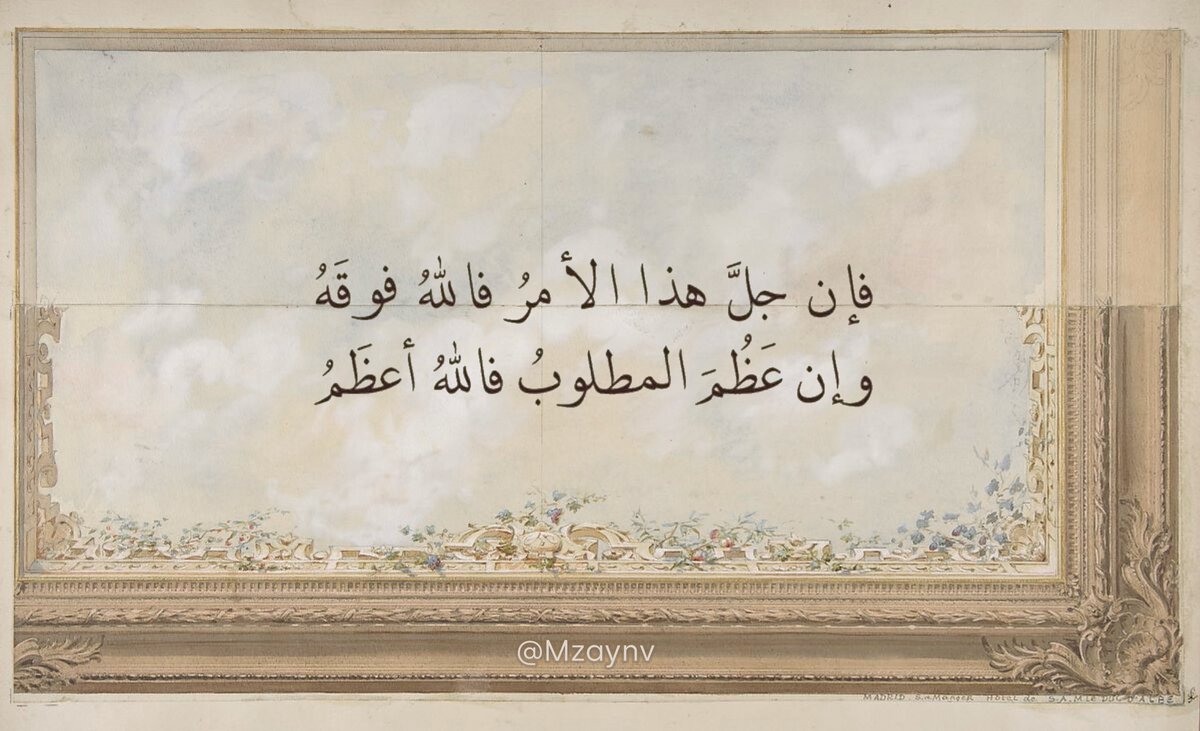 فإن جلَّ هذا الأمرُ فاللهُ فوقَهُ
وإن عَظُمَ المطلوبُ فاللهُ أعظَمُ
@Mzaynv
MADRID S.a Manger Hôtel de S.A. M le DUC D'ALBE